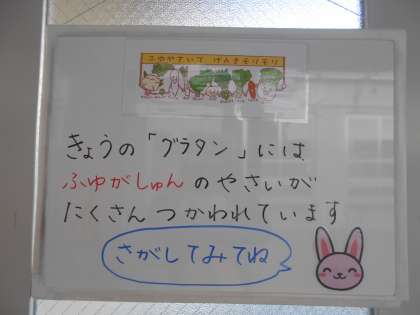 ふゆやさいで げんきモリモリ
きょうの「グラタン」には
ふゆがしゅんのやさいが
たくさんつかわれています
さがしてみてね